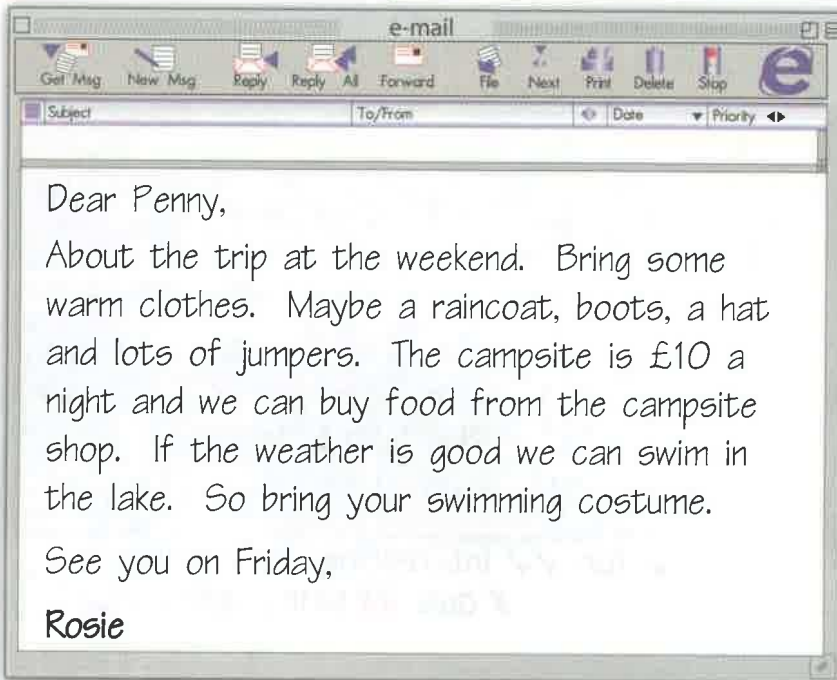 e-mail
Get Msg New Msg Reply Reply All Forward File Next Print Delete Stop
Subject To/From Date Priority
Dear Penny,
About the trip at the weekend. Bring some
warm clothes. Maybe a raincoat, boots, a hat
and lots of jumpers. The campsite is £10 a
night and we can buy food from the campsite
shop. If the weather is good we can swim in
the lake. So bring your swimming costume.
See you on Friday,
Rosie